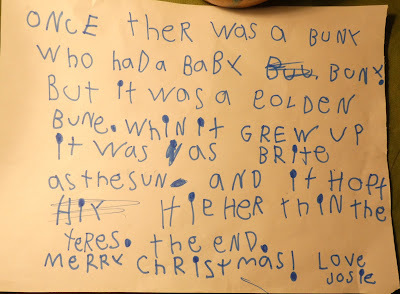 ONCE ther was a BUNY
Who haD a BaBY BUNY.
BUt it was a GOLDEN
BUNE. WhIN it GREW UP
it was as BRite
as the SUN. AND it HOPt
HIY HIEHER thIN the
teRES. the END.
MERRY ChRISTMAS! LOVE
JOSIE